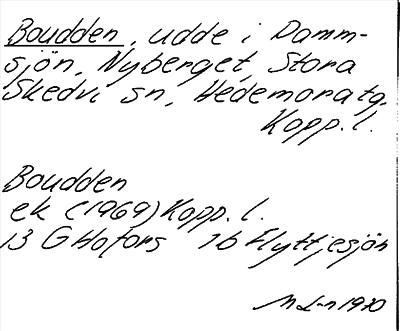 Boudden, udde i Damm-
sjön, Nyberget, Stora
Skedvi sn, Hedemora tg.
Kopp. l.
Boudden
ek (1969) Kopp. l.
13 G Hofors 1b Flyttjesjön
M L-n 1970